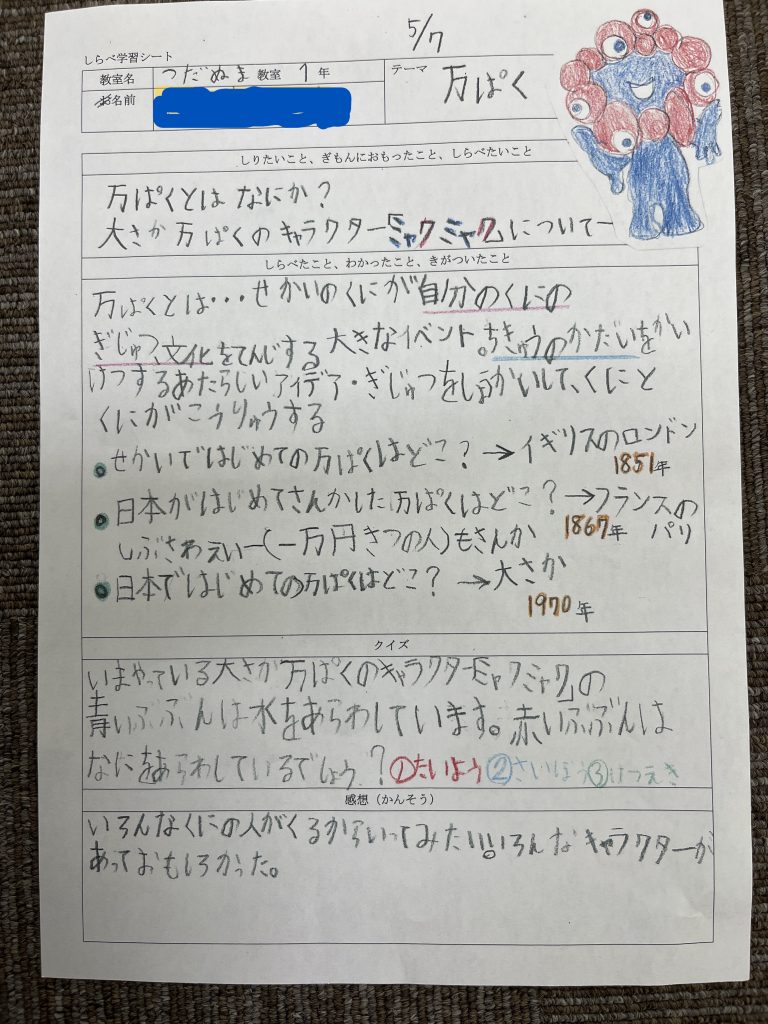 5/7
しらべ学習シート
教室名 つだぬま 教室 1 年
名前
テーマ 万ぱく
しりたいこと、ぎもんにおもったこと、しらべたいこと
万ぱくとは なにか?
大さか 万ぱくのキャラクター「ミャクミャク」について
しらべたこと、わかったこと、きがついたこと
万ぱくとは・・・せかいのくにが自分のくにの
ぎじゅつ、文化をてんじする大きなイベント。ちきゅうのかだいをかい
けつするあたらしいアイデア・ぎじゅつをしょうかいして、くにと
くにがこうりゅうする
●せかいではじめての万ぱくはどこ?→イギリスのロンドン
1851年
●日本がはじめてさんかした万ぱくはどこ?→フランスの
1867年 パリ
しぶさわえい一(一万円さつの人)もさんか
●日本ではじめての万ぱくはどこ? →大さか
1970年
クイズ
いまやっている大さか万ぱくのキャラクター「ミャクミャク」の
青いぶぶんは水をあらわしています。赤いぶぶんは
なにをあらわしているでしょう?①たいよう②さいぼう③けつえき
感想(かんそう)
いろんなくにの人がくるからいってみたい!!いろんなキャラクターが
あっておもしろかった。